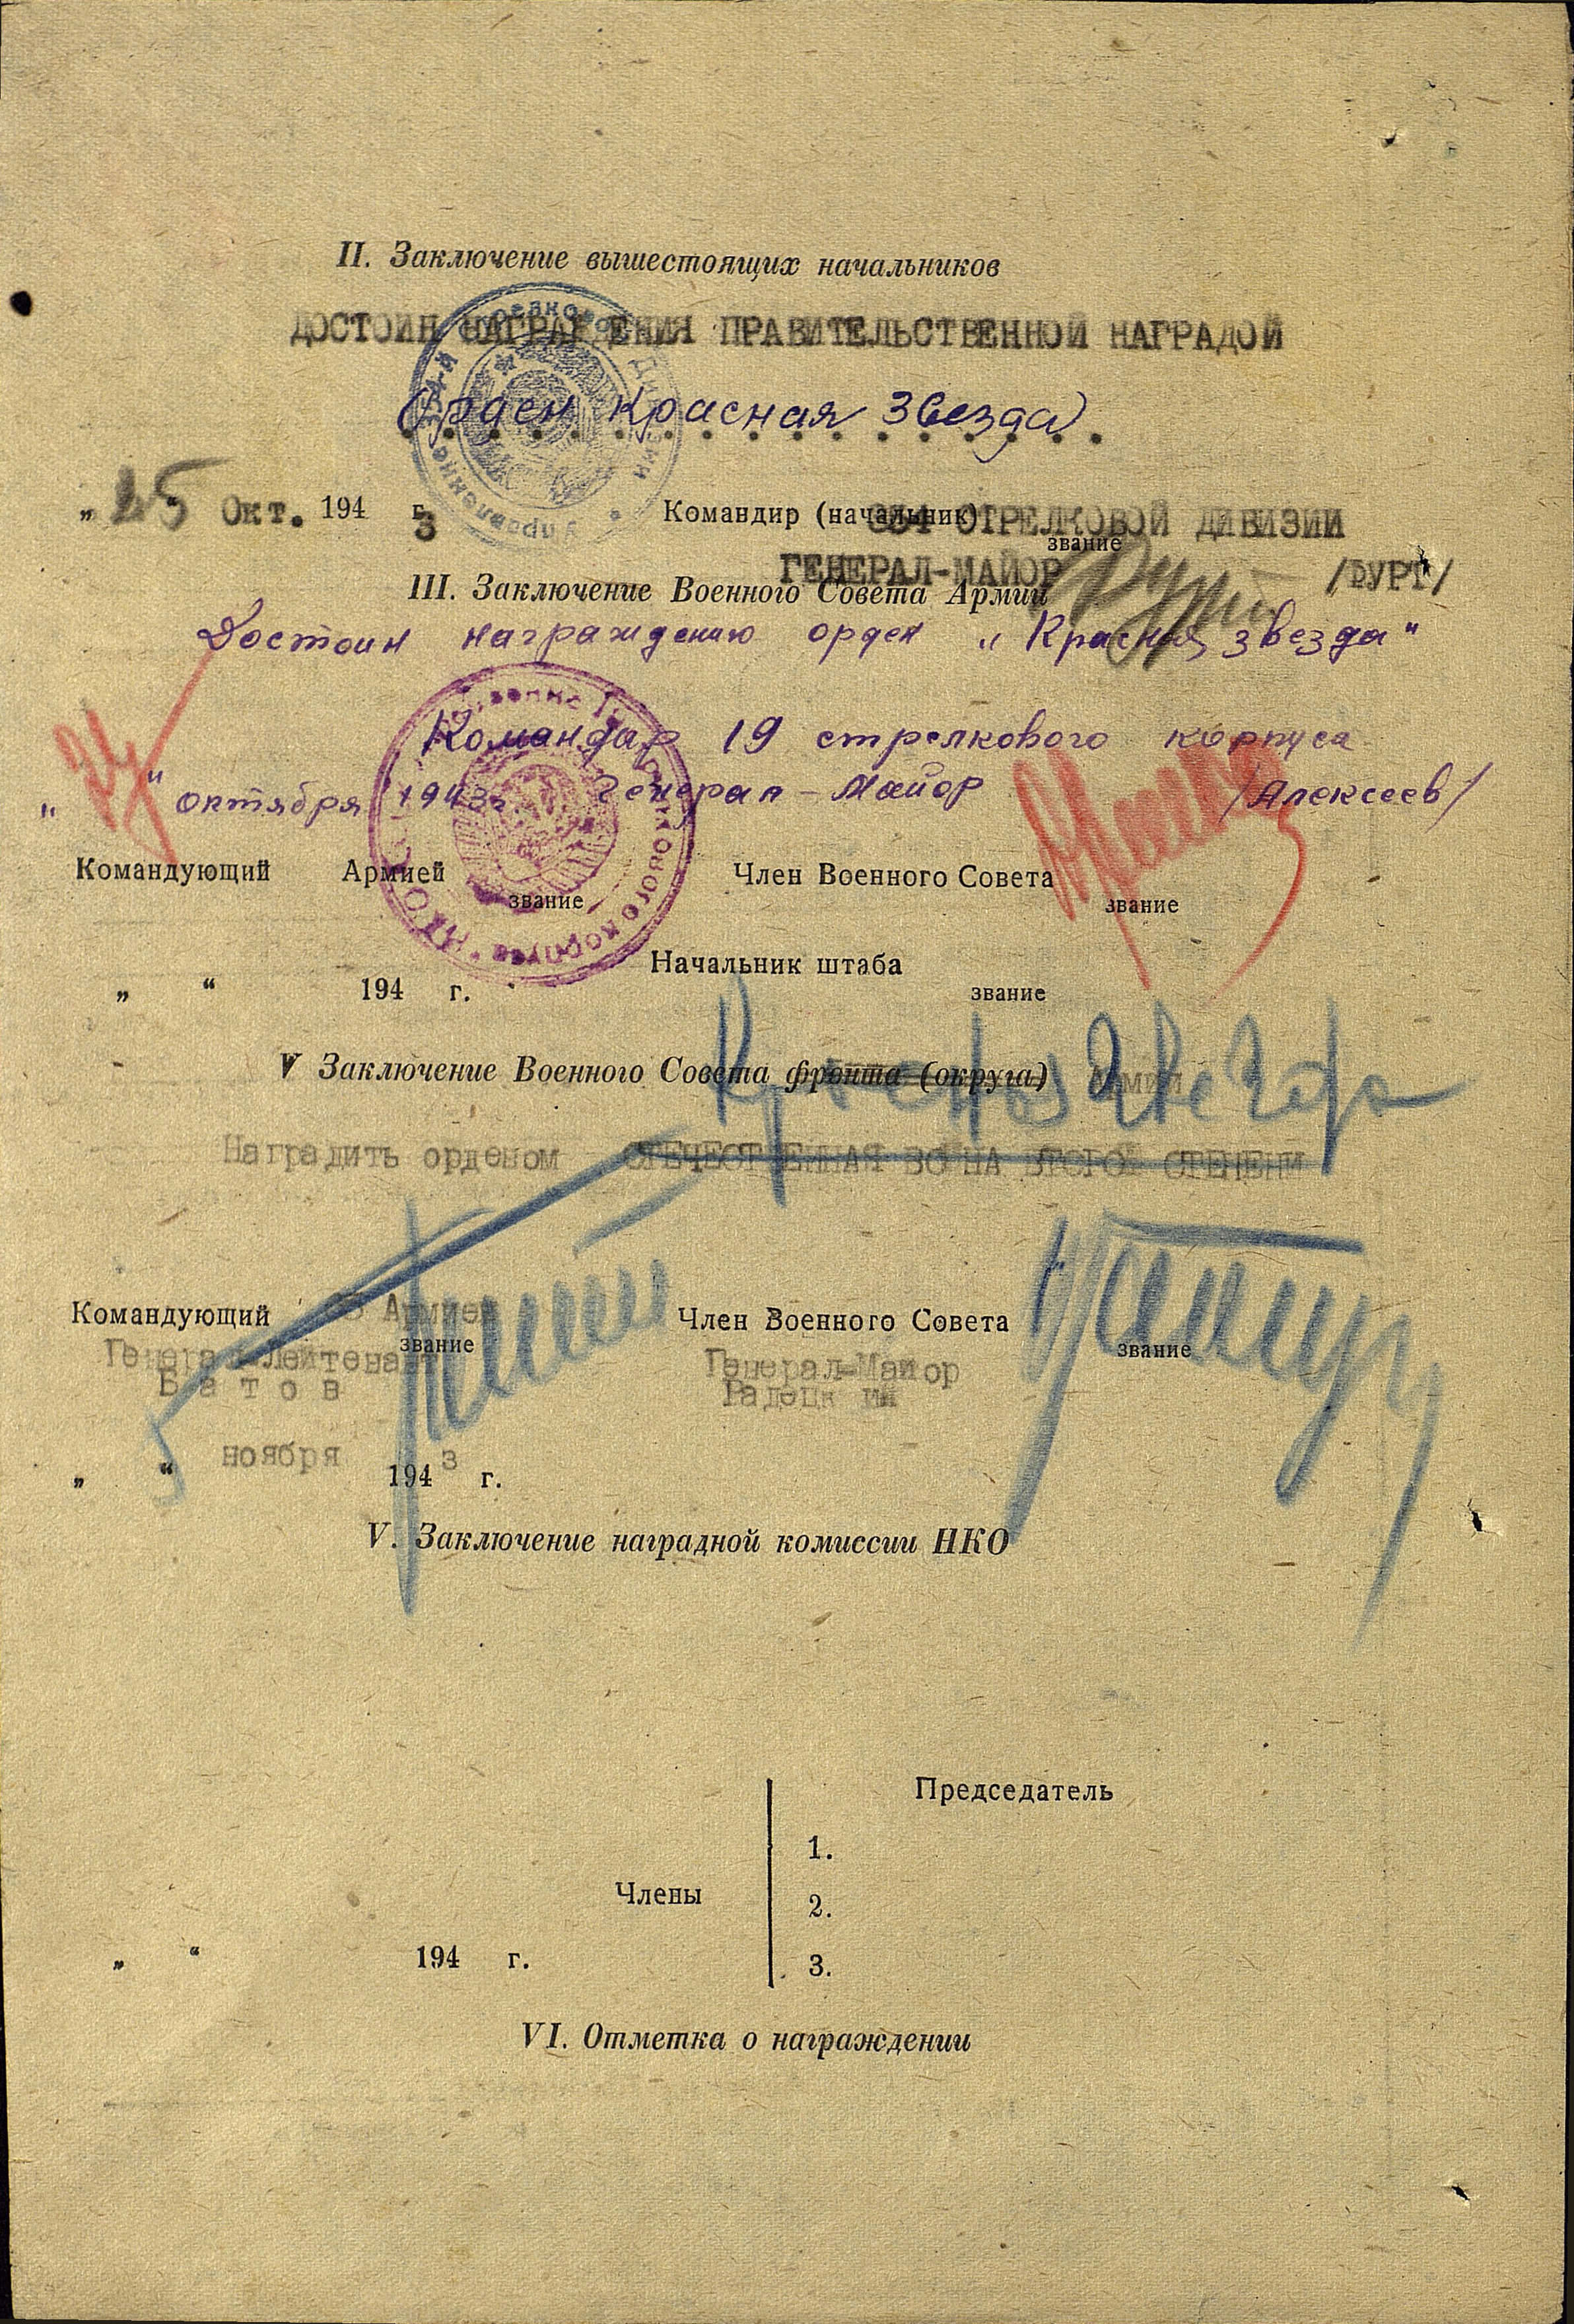 II. Заключение вышестоящих начальников
ДОСТОИН НАГРАЖДЕНИЯ ПРАВИТЕЛЬСТВЕННОЙ НАГРАДОЙ
Орден Красная Звезда
„ 25 “ Окт. 194 3 г. Командир (начальник) 354 СТРЕЛКОВОЙ ДИВИЗИИ
звание
ГЕНЕРАЛ-МАЙОР /БУРГ/
III. Заключение Военного Совета Армии
Достоин награждению орден „Красная звезда“
Командир 19 стрелкового корпуса
„ “ октября 1943г Генерал-Майор /Алексеев/
Командующий Армией Член Военного Совета
звание звание
Начальник штаба
„ “ 194 г. звание
V Заключение Военного Совета фронта (округа) Армии
Красная Звезда
Наградить орденом ОТЕЧЕСТВЕННАЯ ВОЙНА ВТОРОЙ СТЕПЕНИ
Командующий 65 Армией Член Военного Совета
звание звание
Генерал-Лейтенант Генерал-Майор
Батов Радецкий
„ “ ноября 194 3 г.
V. Заключение наградной комиссии НКО
Председатель
1.
Члены 2.
„ “ 194 г. 3.
VI. Отметка о награждении